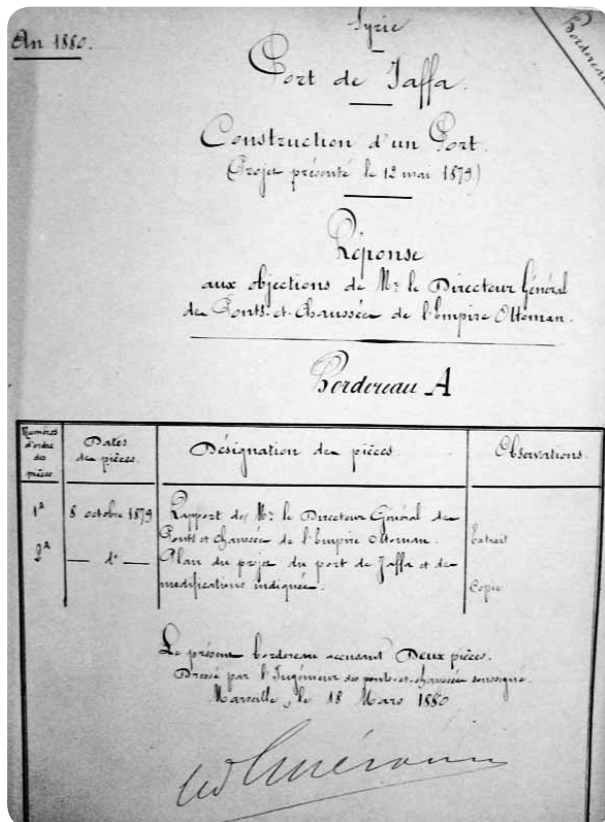 An 1880.
Syrie
Bordereau
Port de Jaffa.
Construction d'un Port.
(Projet présenté le 12 mai 1879)
Réponse
aux objections de Mr le Directeur Général
des Ponts-et-Chaussées de l'Empire Ottoman.
Bordereau A
Numéros d'ordre des pièces
Dates des pièces.
Désignation des pièces.
Observations.
1A 8 octobre 1879 Rapport de Mr le Directeur Général des
Ponts et chaussées de l'Empire Ottoman. Extrait
2A — do — Plan du projet du port de Jaffa et des
modifications indiquées. Copie
Le présent bordereau accusant Deux pièces.
Dressé par l'Ingénieur des ponts-et-chaussées soussigné.
Marseille, le 18 Mars 1880